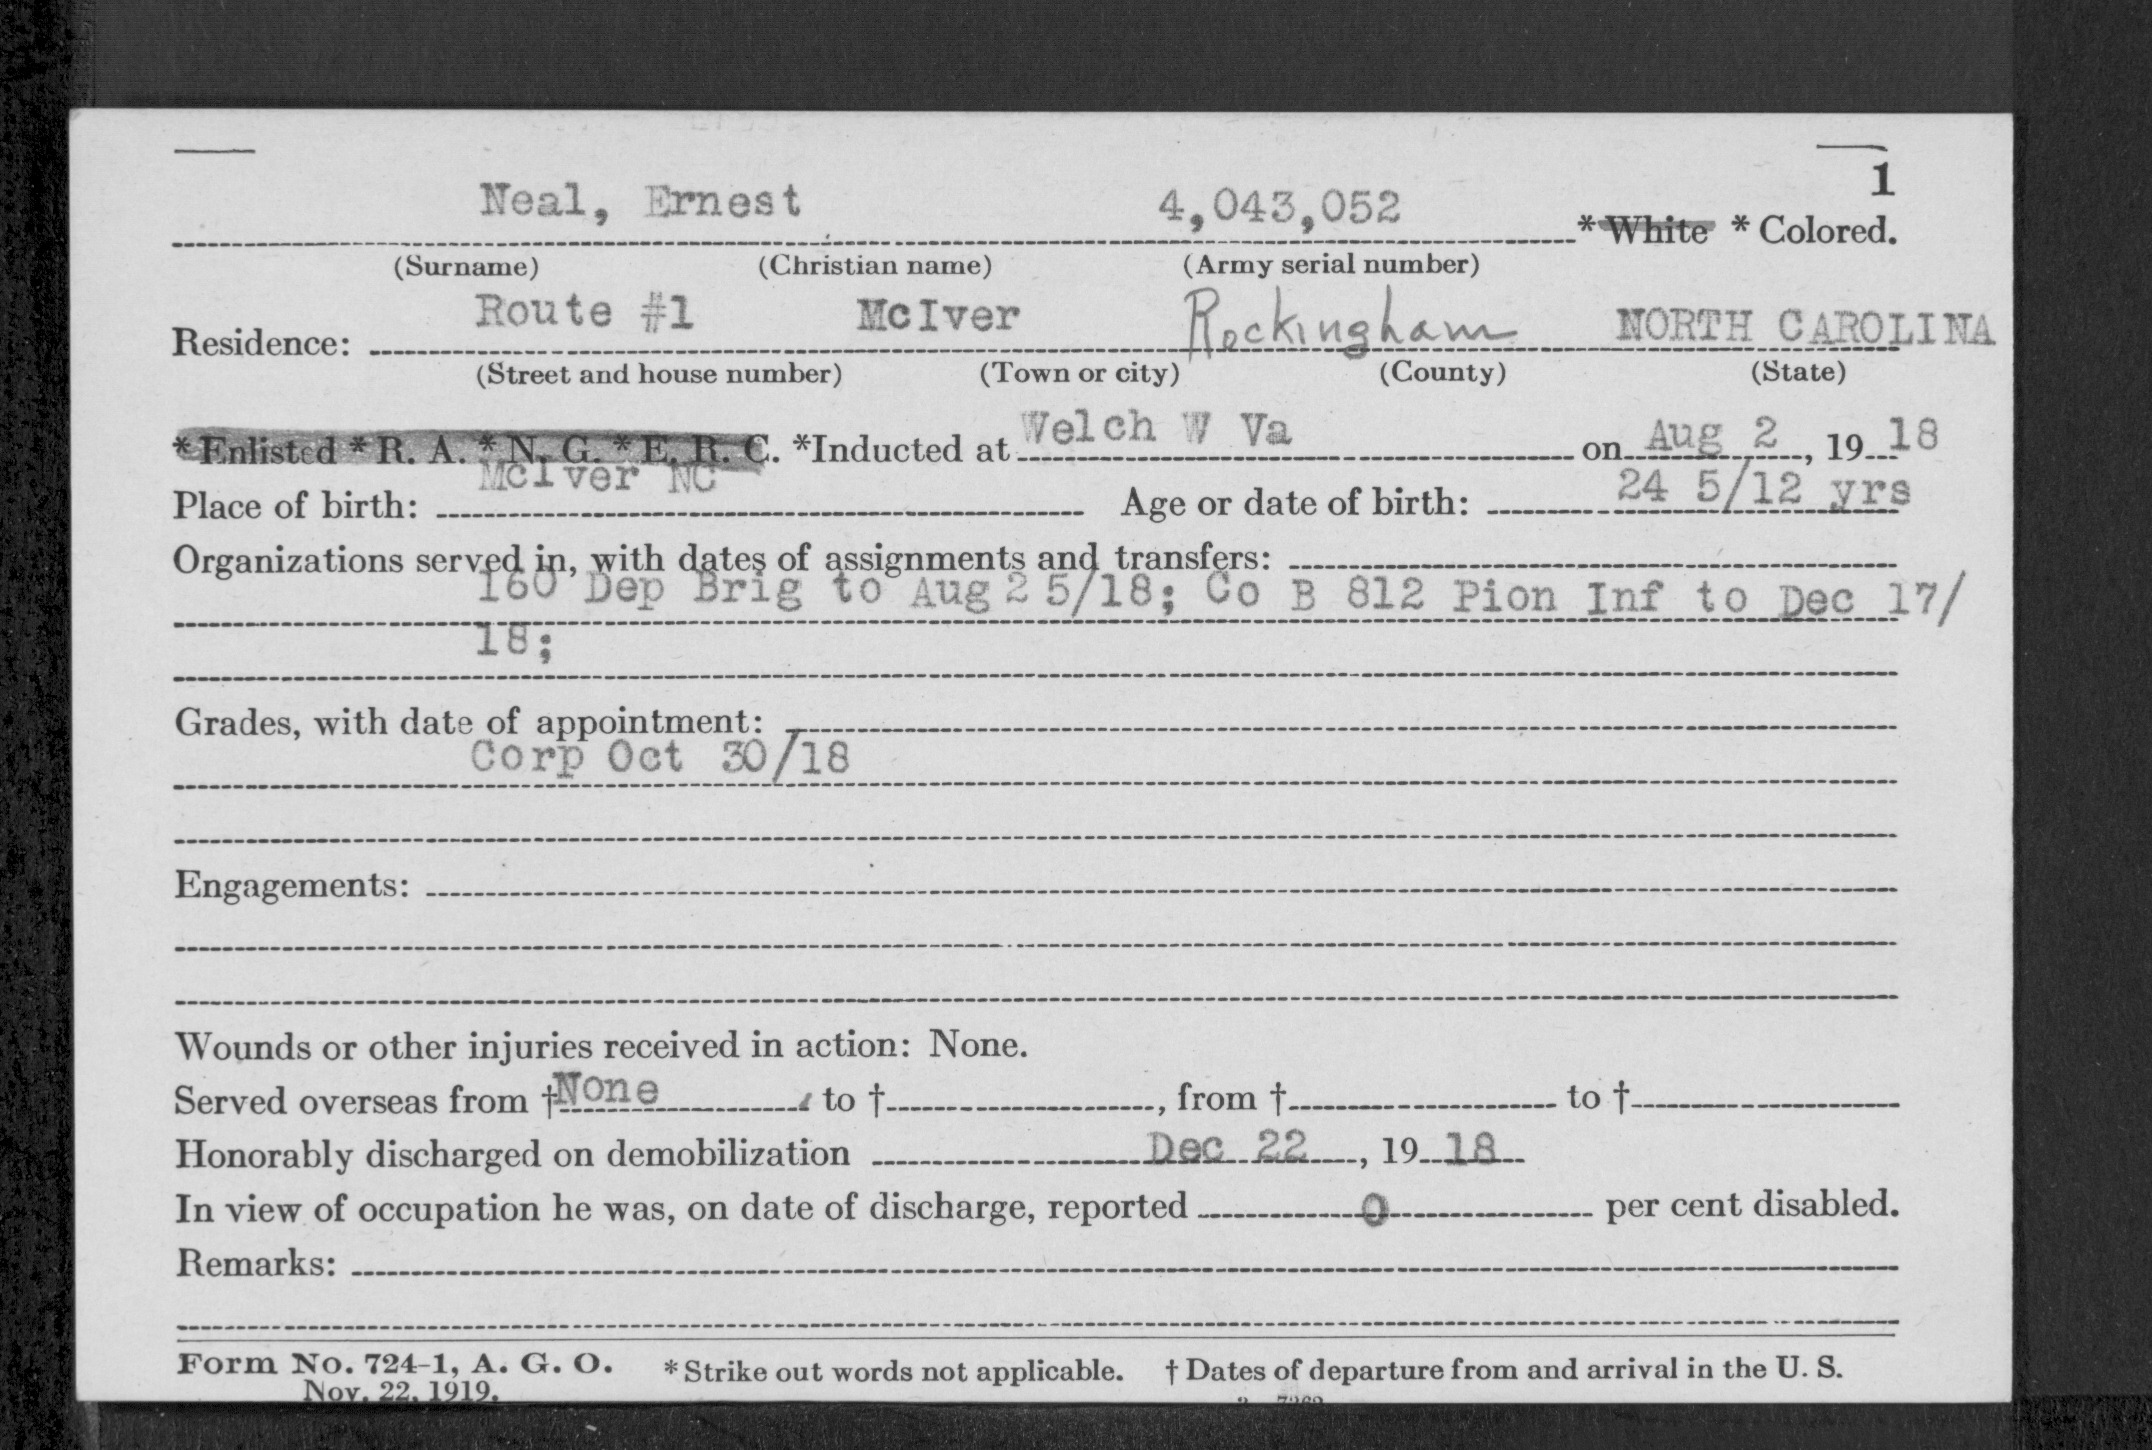 1
Neal, Ernest 4,043,052 * White * Colored.
(Surname) (Christian name) (Army serial number)
Residence: Route #1 McIver Rockingham NORTH CAROLINA
(Street and house number) (Town or city) (County) (State)
* Enlisted * R. A. * N. G. * E. R. C. *Inducted at Welch W Va on Aug 2, 19 18
Place of birth: McIver NC Age or date of birth: 24 5/12 yrs
Organizations served in, with dates of assignments and transfers:
160 Dep Brig to Aug 25/18; Co B 812 Pion Inf to Dec 17/
18;
Grades, with date of appointment:
Corp Oct 30/18
Engagements:
Wounds or other injuries received in action: None.
Served overseas from † None to †, from † to †
Honorably discharged on demobilization Dec 22, 19 18
In view of occupation he was, on date of discharge, reported 0 per cent disabled.
Remarks:
Form No. 724-1, A. G. O. * Strike out words not applicable. † Dates of departure from and arrival in the U. S.
Nov. 22, 1919.